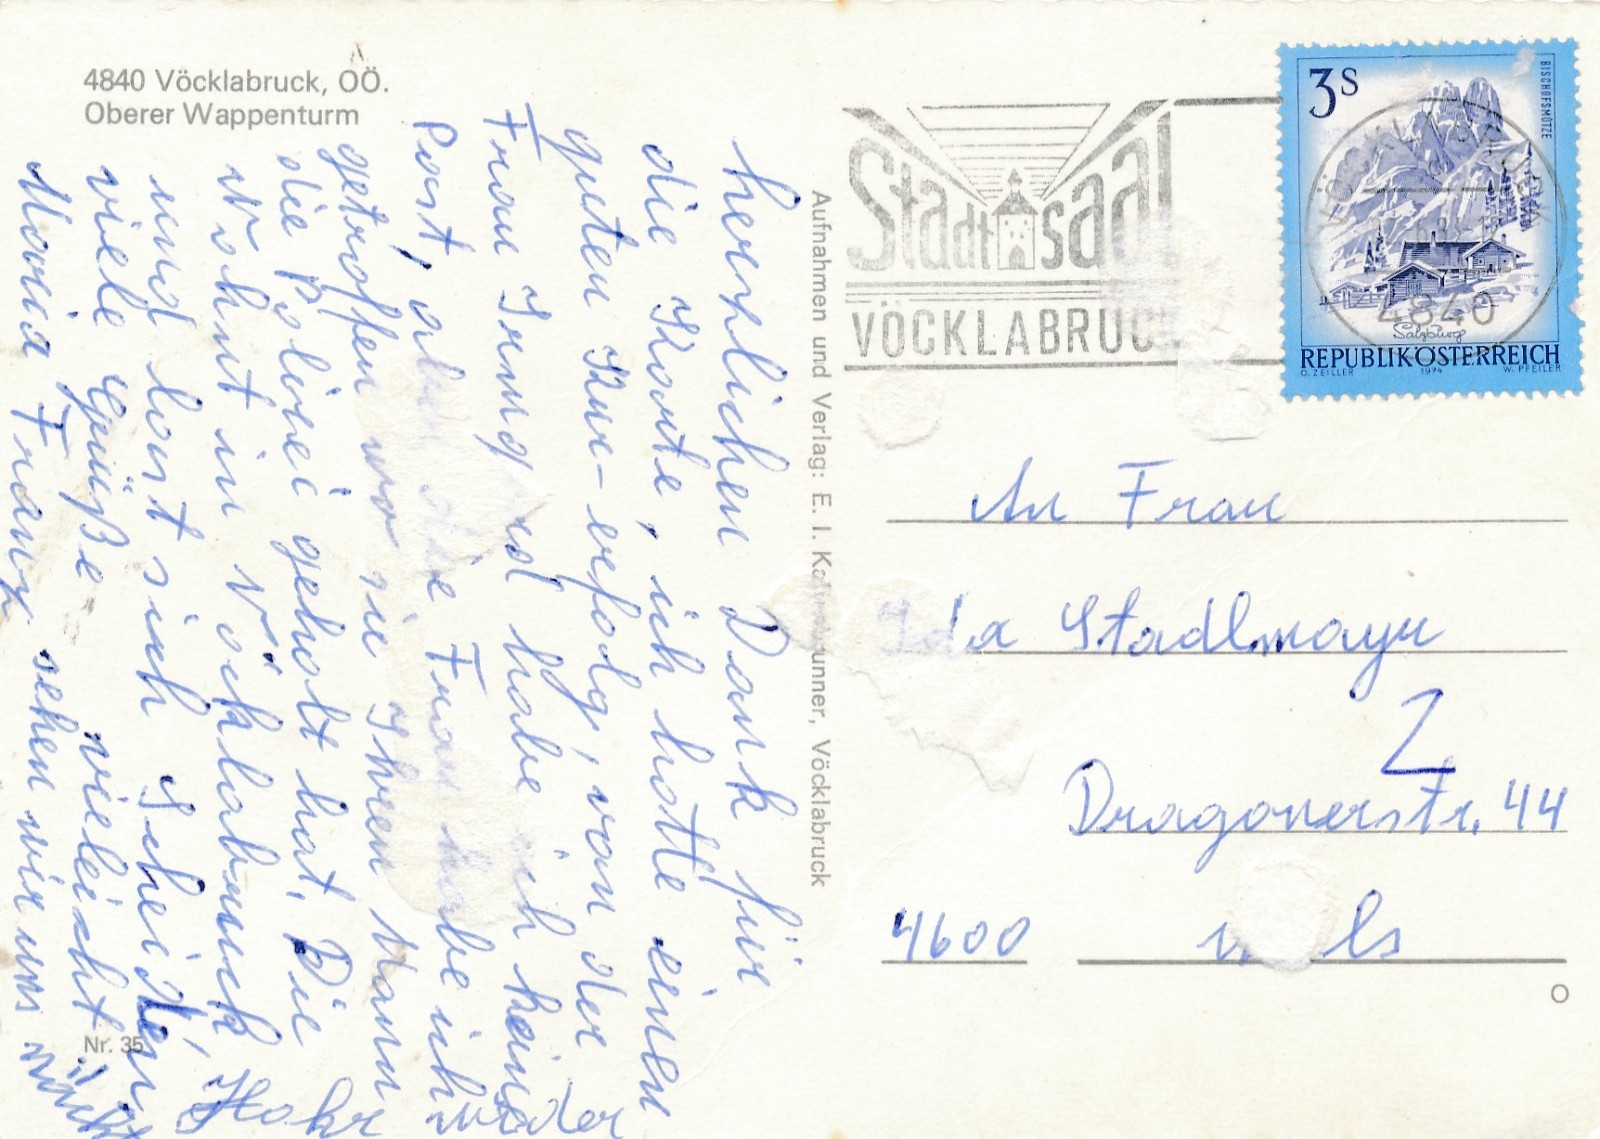 4840 Vöcklabruck, OÖ.
Oberer Wappenturm
herzlichen Dank für
die Karte, ich hatte einen
guten Kur-erfolg, von der
Frau Irmg habe ich keine
Post, aber die Frau habe ich
getroffen wo sie Ihren Mann
die Polizei geholt hat. Die
Wohnt in Vöcklabruck
und last sich Scheiden,
viele Grüße vieleicht
Maria Franz sehen wir uns
Nr. 35
Aufnahmen und Verlag: E. I. Vöcklabruck
Stadtsaal
VÖCKLABRUCK
3S
BISCHOFSMÜTZE
4840
Salzburg
REPUBLIK ÖSTERREICH
O. ZEILLER 1974 W. PFEILER
An Frau
Stadlmayr
Dragonerstr. 44
4600 Wels